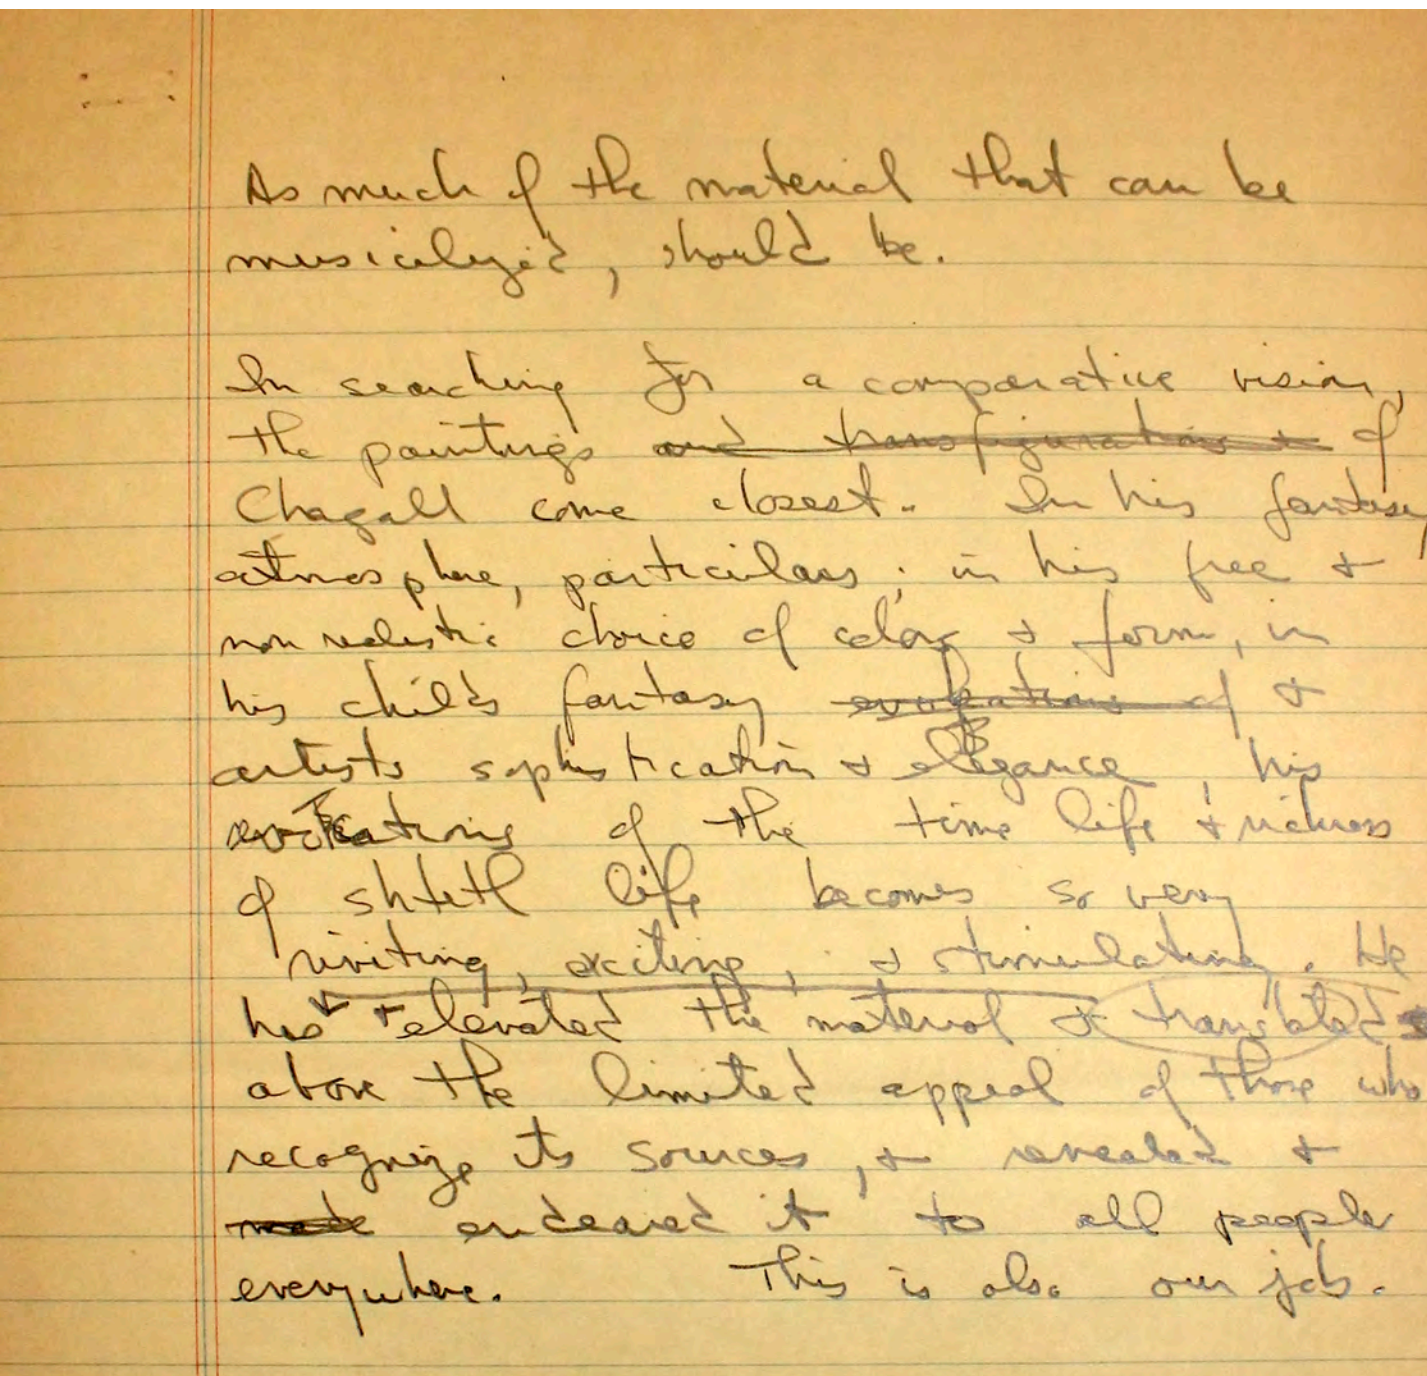 As much of the material that can be
musicalyzed, should be.
In searching for a comparative vision,
the paintings and transfigurations + of
Chagall come closest. In his fantasy
atmosphere, particulars; in his free +
non realistic choice of color + form, in
his child's fantasy evokations of +
artists sophistication + elegance, his
evokations of the time life + richness
of shtetl life becomes so very
inviting, exciting, + stimulating. He
has elevated the material + translated
above the limited appeal of those who
recognize its sources, + revealed +
made endeared it to all people
everywhere. This is also our job.